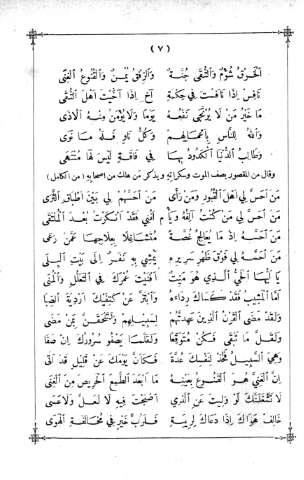 (٧)
الخرق شؤم والتقى جنة والرفق يمن والقنوع الغنى
نافس إذا نافست في حكمة آخ إذا آخيت أهل التقى
ما خير من لا يرتجى نفعه يوما ولا يؤمن منه الأذى
والله للناس بأعمالهم وكل ناو فله ما نوى
وطالب الدنيا الكدود بها في فاقة ليس لها منتهى
وقال من المقصور يصف الموت وسكراته ويذكر من هلك من أصحابه (من الكامل)
من أحس لي أهل القبور ومن رأى من أحسهم لي بين أطباق الثرى
من أحس لي من كنت آلفه ويألفني فقد أنكرت بعد الملتقى
من أحسه إذ يعالج غصة متشاغلا بعلاجها عمن رعى
من أحسه لي فوق ظهر سريره يمشي به نفر إلى بيت البلى
يا أيها الحي الذي هو ميت أفنيت عمرك في التعلل والمنى
أما المشيب فقد كساك رداءه وابتز عن كتفيك أردية الصبا
ولقد مضى القرن الذين عهدتهم لسبيلهم ولتلحقن بمن مضى
ولقل ما تبقى فكن متوقعا ولقلما يصفو سرورك إن صفا
وهي السبيل فخذ لنفسك عدة فكأن يومك عن قليل قد أتى
إن الغنى هو القنوع بعينه ما أبعد الطبع الحريص من الغنى
لا تشغلنك لو وليت عن الذي أصبحت فيه لا لعل ولا عسى
خالف هواك إذا دعاك لريبة فلرب خير في مخالفة الهوى